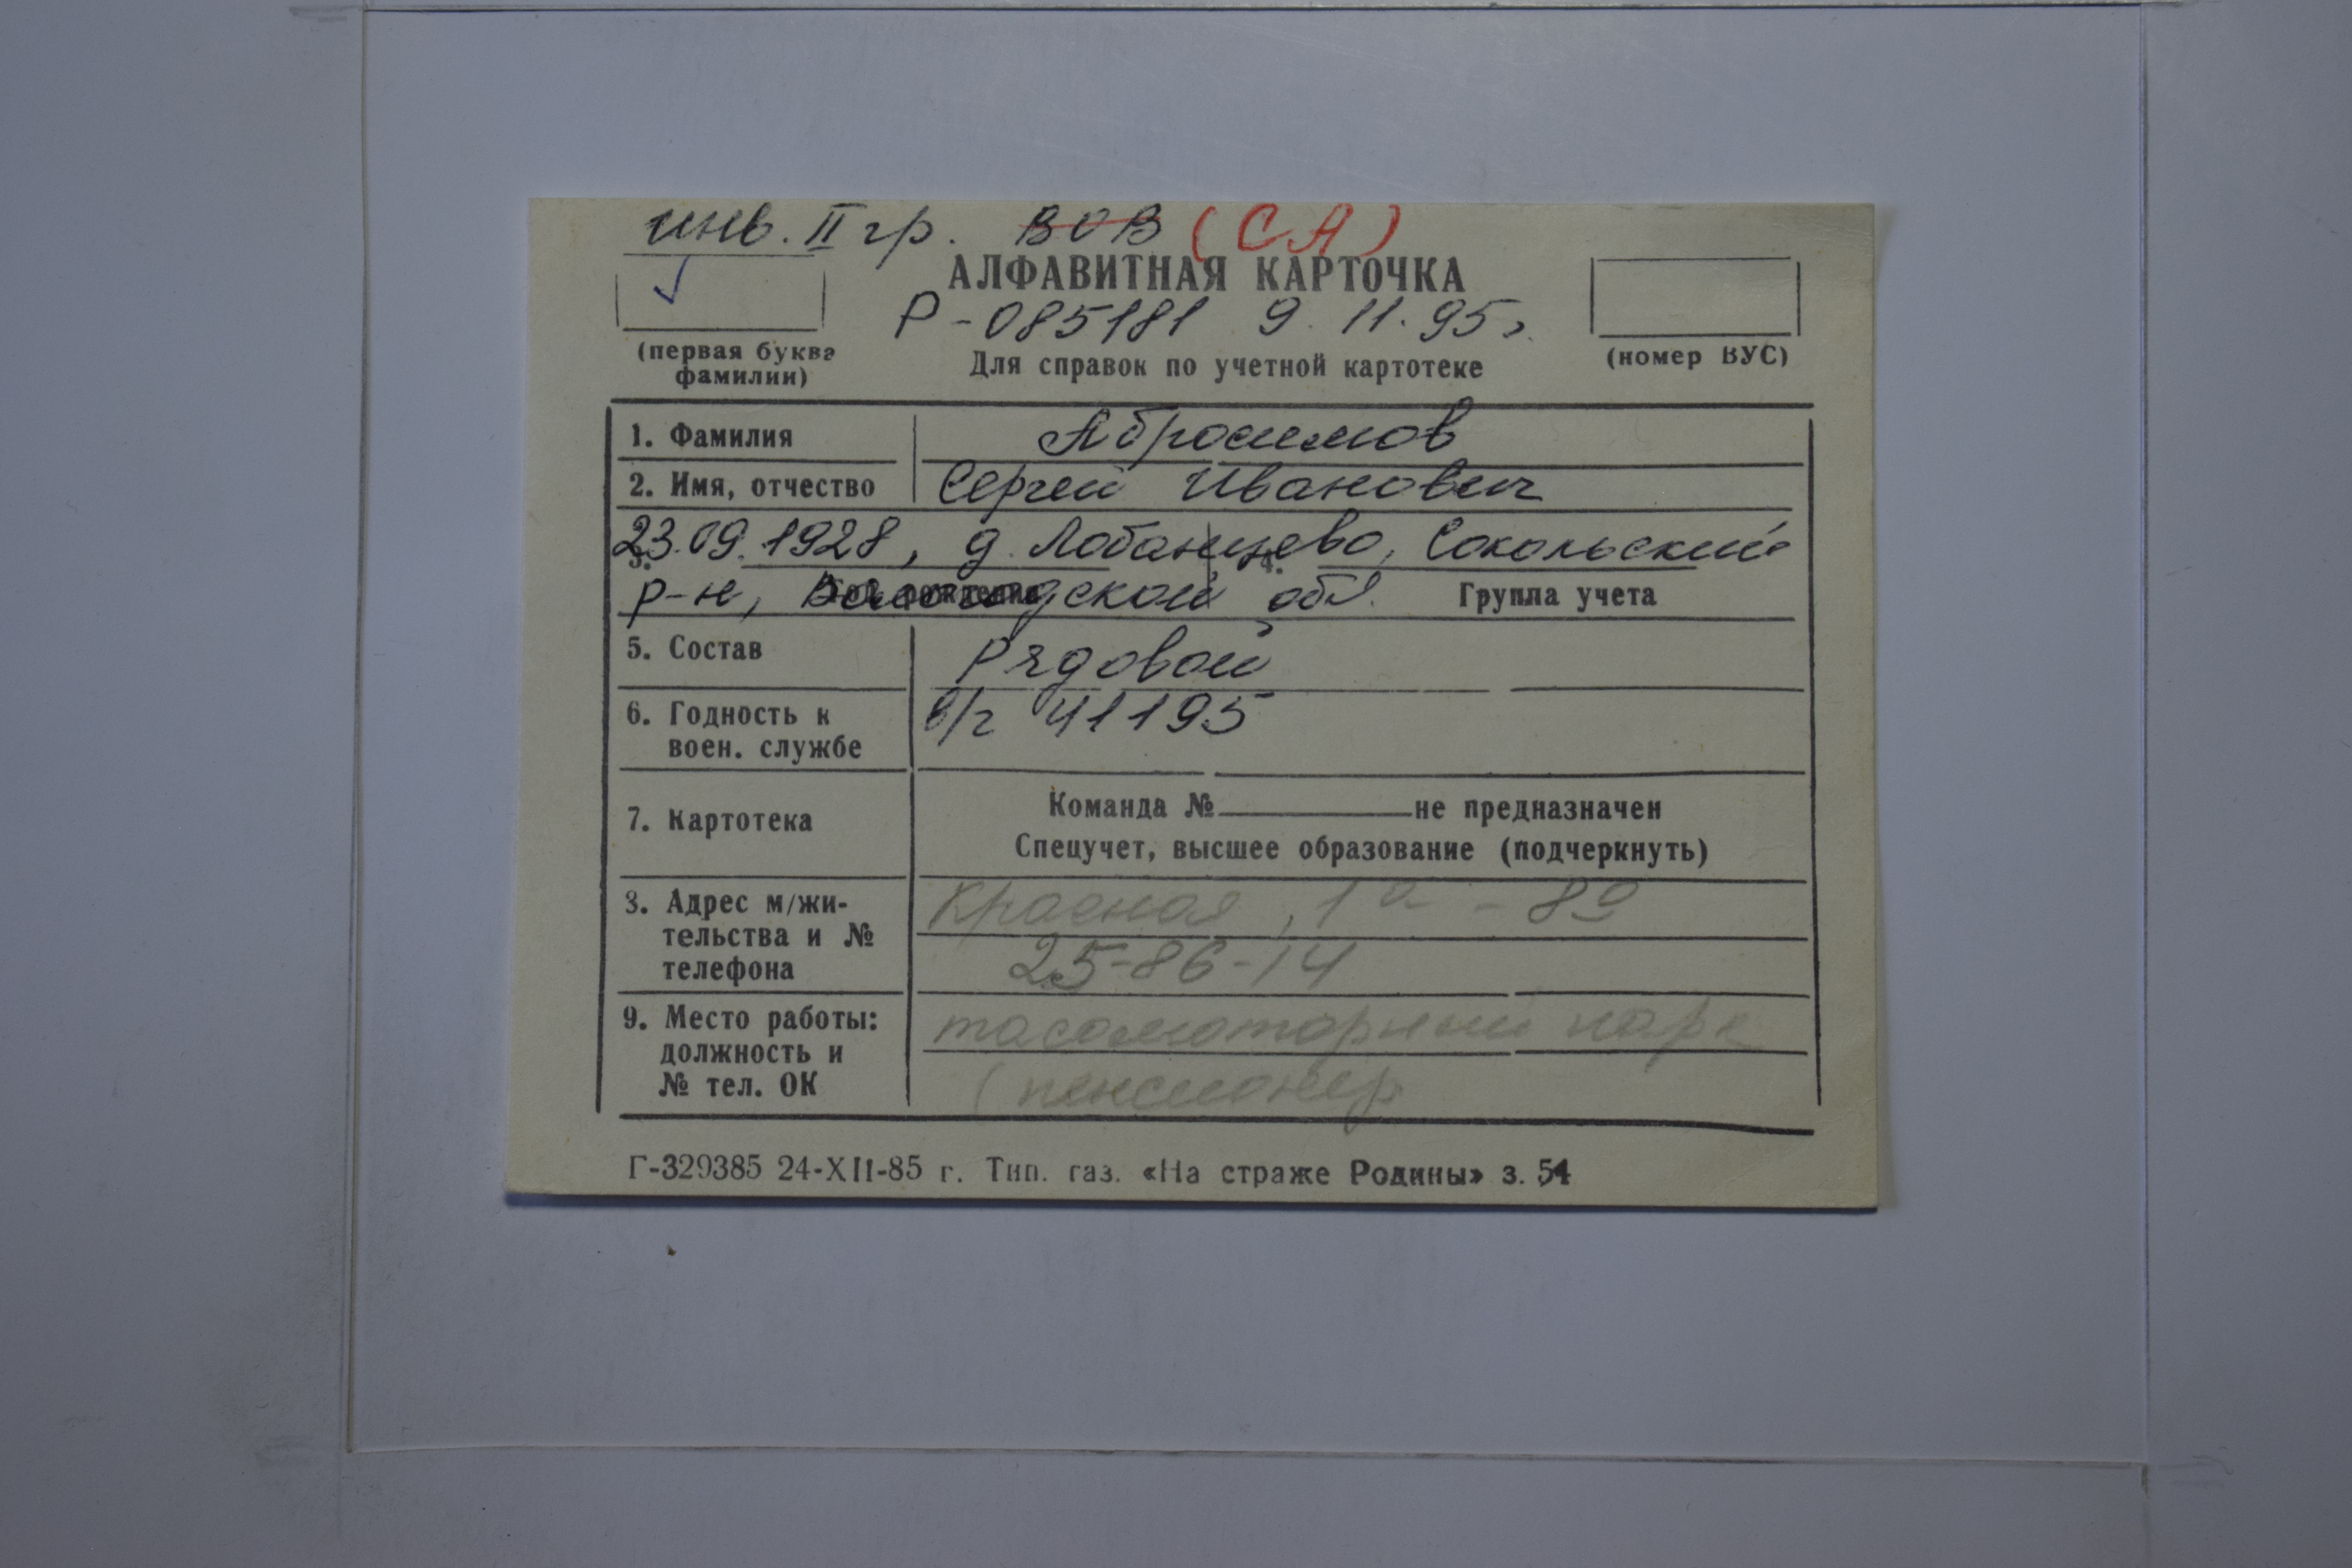 инв. II гр. ВОВ (СА)
АЛФАВИТНАЯ КАРТОЧКА
Р-085181 9.11.95г.
(первая буква фамилии)
Для справок по учетной картотеке
(номер ВУС)
1. Фамилия Абросимов
2. Имя, отчество Сергей Иванович
23.09.1928, д. Лобанцево, Сокольский
3. 4.
р-н, Вологодской обл. Группа учета
5. Состав Рядовой
6. Годность к в/ч 41195
воен. службе
Команда № не предназначен
7. Картотека
Спецучет, высшее образование (подчеркнуть)
8. Адрес м/жи- Красная, 1а - 80
тельства и № 25-86-14
телефона
9. Место работы: таксомоторный парк
должность и
№ тел. ОК (пенсионер
Г-329385 24-XII-85 г. Тип. газ. «На страже Родины» з. 54